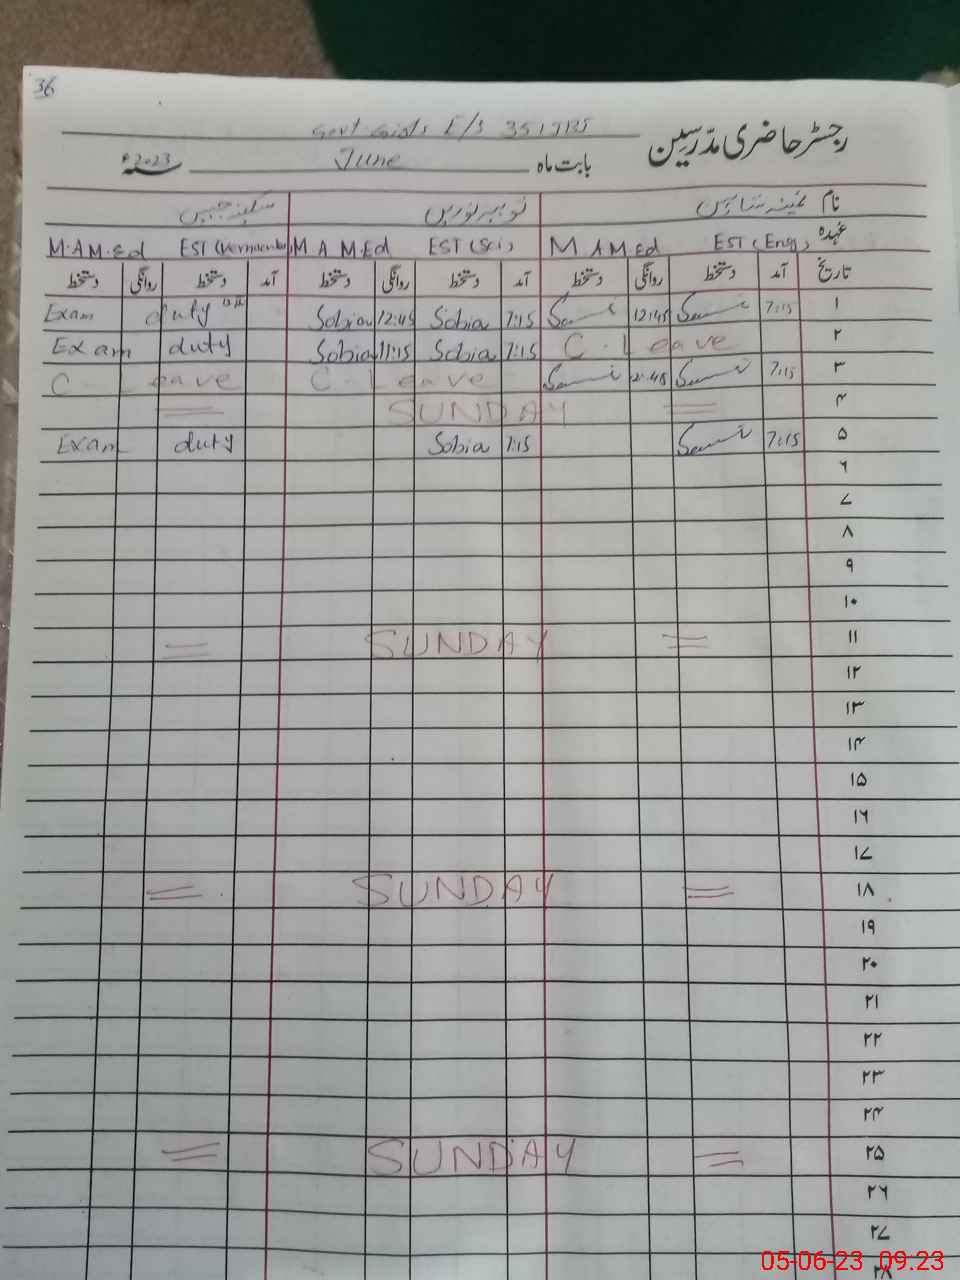 36
Govt Girls E/S 351 TB5
رجسٹر حاضری مدرسین
بابت ماہ June سنہ 2023ء
نام
عہدہ M A M Ed EST (Eng) M A M.Ed EST (Sci) M.A M.Ed EST (Vernacular)
تاریخ آمد دستخط روانگی دستخط آمد دستخط روانگی دستخط آمد دستخط روانگی دستخط
۱ 7:15 12:45 7:15 Sobia 12:45 Sobia Exam duty
۲ C. Leave 7:15 Sobia 11:15 Sobia Exam duty
۳ 7:15 C. Leave C Leave
۴ = SUNDAY =
۵ 7:15 7:15 Sobia Exam duty
۶
۷
۸
۹
۱۰
۱۱ = SUNDAY =
۱۲
۱۳
۱۴
۱۵
۱۶
۱۷
۱۸ = SUNDAY =
۱۹
۲۰
۲۱
۲۲
۲۳
۲۴
۲۵ = SUNDAY =
۲۶
۲۷
۲۸
05-06-23 09.23